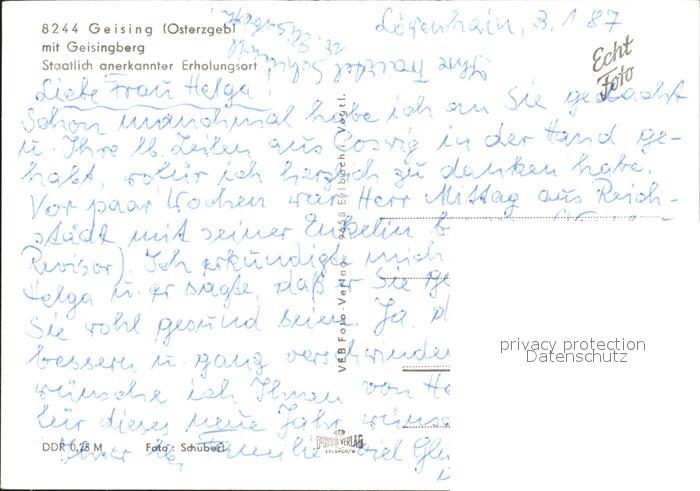 8244 Geising (Osterzgeb)
mit Geisingberg
Staatlich anerkannter Erholungsort
Echt
Foto
Löwenhain, 3.1.87
Liebe Frau Helga!
Schon manchmal habe ich an Sie gedacht
u. Ihre lb. Zeilen aus Coswig in der Hand ge-
habt, wofür ich herzlich zu danken habe.
Vor paar Wochen war Herr Mittag aus Reich-
städt mit seiner Enkelin b
Revisor). Ich erkundigte mich
Helga u. er sagte, daß er Sie ge
Sie wohl gesund seien. Ja, d
bessern u. ganz verschwinden
wünsche ich Ihnen von He
für dieses neue Jahr wünsc
Ihrer lb. Familie viel Glü
VEB Foto-Verlag 9658 Erlbach i. Vogtl.
FOTO VERLAG
ERLBACH/V.
DDR 0,25 M Foto: Schubert
privacy protection
Datenschutz